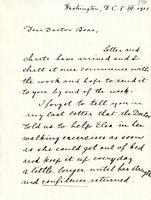 Washington, D.C. 5 III. 1918
Dear Doctor Boas,
Letter and
charts have arrived and I
shall at once commence with
the work and hope to send it
to you by end of the week.
I forgot to tell you in
my last letter that the Doctor
told us to help Elsa in her
walking exercises as soon
as she could get out of bed
and keep it up everyday
a little longer until her strength
and confidence returned.